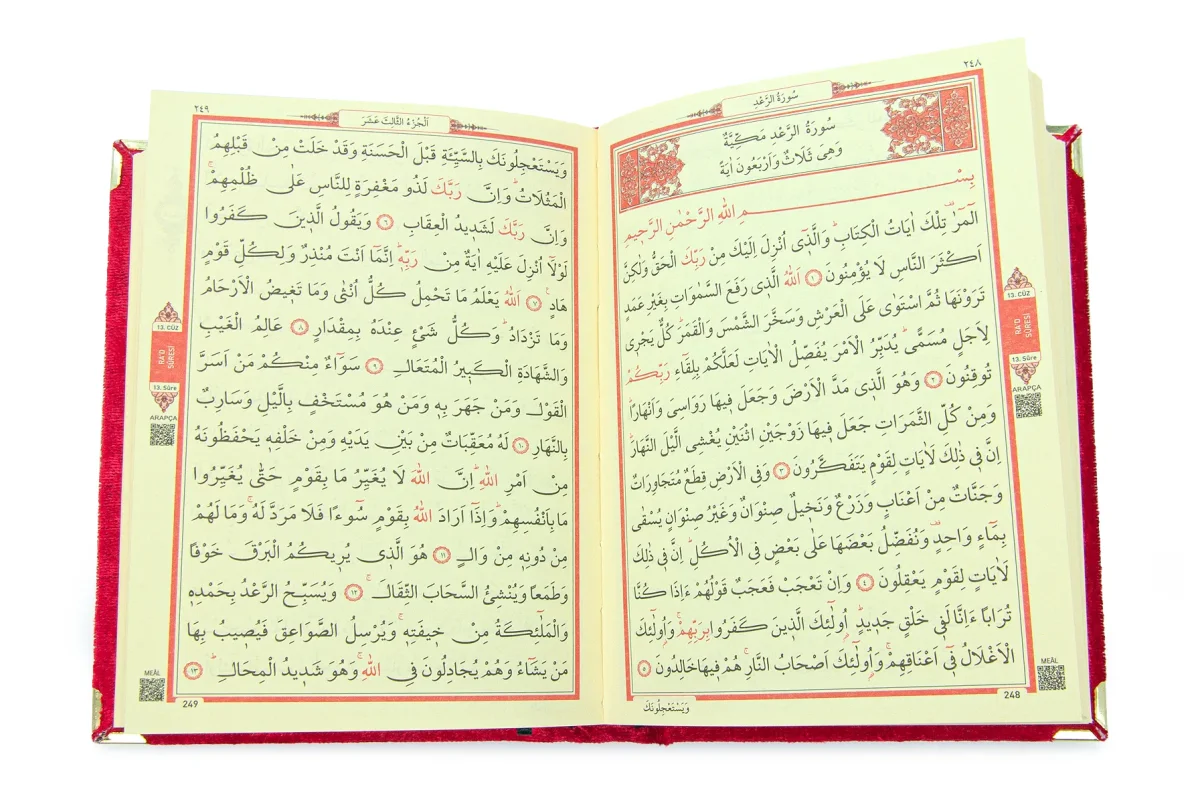 ٢٤٨
سُورَةُ الرَّعْدِ
سُورَةُ الرَّعْدِ مَكِّيَّةٌ
وَهِىَ ثَلَاثٌ وَاَرْبَعُونَ اٰيَةً
بِسْمِ اللّٰهِ الرَّحْمٰنِ الرَّحٖيمِ
الٓمٓرٰ تِلْكَ اٰيَاتُ الْكِتَابِؕ وَالَّذٖٓى اُنْزِلَ اِلَيْكَ مِنْ رَبِّكَ الْحَقُّ وَلٰكِنَّ
اَكْثَرَ النَّاسِ لَا يُؤْمِنُونَ ١ اَللّٰهُ الَّذٖى رَفَعَ السَّمٰوَاتِ بِغَيْرِ عَمَدٍ
تَرَوْنَهَا ثُمَّ اسْتَوٰى عَلَى الْعَرْشِ وَسَخَّرَ الشَّمْسَ وَالْقَمَرَؕ كُلٌّ يَجْرٖى
لِاَجَلٍ مُسَمًّىؕ يُدَبِّرُ الْاَمْرَ يُفَصِّلُ الْاٰيَاتِ لَعَلَّكُمْ بِلِقَٓاءِ رَبِّكُمْ
تُوقِنُونَ ٢ وَهُوَ الَّذٖى مَدَّ الْاَرْضَ وَجَعَلَ فٖيهَا رَوَاسِىَ وَاَنْهَارًاؕ
وَمِنْ كُلِّ الثَّمَرَاتِ جَعَلَ فٖيهَا زَوْجَيْنِ اثْنَيْنِ يُغْشِى الَّيْلَ النَّهَارَؕ
اِنَّ فٖى ذٰلِكَ لَاٰيَاتٍ لِقَوْمٍ يَتَفَكَّرُونَ ٣ وَفِى الْاَرْضِ قِطَعٌ مُتَجَاوِرَاتٌ
وَجَنَّاتٌ مِنْ اَعْنَابٍ وَزَرْعٌ وَنَخٖيلٌ صِنْوَانٌ وَغَيْرُ صِنْوَانٍ يُسْقٰى
بِمَٓاءٍ وَاحِدٍ وَنُفَضِّلُ بَعْضَهَا عَلٰى بَعْضٍ فِى الْاُكُلِؕ اِنَّ فٖى ذٰلِكَ
لَاٰيَاتٍ لِقَوْمٍ يَعْقِلُونَ ٤ وَاِنْ تَعْجَبْ فَعَجَبٌ قَوْلُهُمْ ءَاِذَا كُنَّا
تُرَابًا ءَاِنَّا لَفٖى خَلْقٍ جَدٖيدٍؕ اُو۬لٰٓئِكَ الَّذٖينَ كَفَرُوا بِرَبِّهِمْۚ وَاُو۬لٰٓئِكَ
الْاَغْلَالُ فٖٓى اَعْنَاقِهِمْۚ وَاُو۬لٰٓئِكَ اَصْحَابُ النَّارِۚ هُمْ فٖيهَا خَالِدُونَ ٥
وَيَسْتَعْجِلُونَكَ
248
13. CÜZ
RA'D
SÛRESİ
13. Sûre
ARAPÇA
MEÂL
٢٤٩
اَلْجُزْءُ الثَّالِثَ عَشَرَ
وَيَسْتَعْجِلُونَكَ بِالسَّيِّئَةِ قَبْلَ الْحَسَنَةِ وَقَدْ خَلَتْ مِنْ قَبْلِهِمُ
الْمَثُلَاتُؕ وَاِنَّ رَبَّكَ لَذُو مَغْفِرَةٍ لِلنَّاسِ عَلٰى ظُلْمِهِمْۚ
وَاِنَّ رَبَّكَ لَشَدٖيدُ الْعِقَابِ ٦ وَيَقُولُ الَّذٖينَ كَفَرُوا
لَوْلَٓا اُنْزِلَ عَلَيْهِ اٰيَةٌ مِنْ رَبِّهٖؕ اِنَّمَٓا اَنْتَ مُنْذِرٌ وَلِكُلِّ قَوْمٍ
هَادٍۚ ٧ اَللّٰهُ يَعْلَمُ مَا تَحْمِلُ كُلُّ اُنْثٰى وَمَا تَغٖيضُ الْاَرْحَامُ
وَمَا تَزْدَادُؕ وَكُلُّ شَىْءٍ عِنْدَهُ بِمِقْدَارٍ ٨ عَالِمُ الْغَيْبِ
وَالشَّهَادَةِ الْكَبٖيرُ الْمُتَعَالِ ٩ سَوَٓاءٌ مِنْكُمْ مَنْ اَسَرَّ
الْقَوْلَ وَمَنْ جَهَرَ بِهٖ وَمَنْ هُوَ مُسْتَخْفٍ بِالَّيْلِ وَسَارِبٌ
بِالنَّهَارِ ١٠ لَهُ مُعَقِّبَاتٌ مِنْ بَيْنِ يَدَيْهِ وَمِنْ خَلْفِهٖ يَحْفَظُونَهُ
مِنْ اَمْرِ اللّٰهِؕ اِنَّ اللّٰهَ لَا يُغَيِّرُ مَا بِقَوْمٍ حَتّٰى يُغَيِّرُوا
مَا بِاَنْفُسِهِمْؕ وَاِذَٓا اَرَادَ اللّٰهُ بِقَوْمٍ سُٓوءًا فَلَا مَرَدَّ لَهُۚ وَمَا لَهُمْ
مِنْ دُونِهٖ مِنْ وَالٍ ١١ هُوَ الَّذٖى يُرٖيكُمُ الْبَرْقَ خَوْفًا
وَطَمَعًا وَيُنْشِئُ السَّحَابَ الثِّقَالَۚ ١٢ وَيُسَبِّحُ الرَّعْدُ بِحَمْدِهٖ
وَالْمَلٰٓئِكَةُ مِنْ خٖيفَتِهٖۚ وَيُرْسِلُ الصَّوَاعِقَ فَيُصٖيبُ بِهَا
مَنْ يَشَٓاءُ وَهُمْ يُجَادِلُونَ فِى اللّٰهِۚ وَهُوَ شَدٖيدُ الْمِحَالِؕ ١٣
249
13. CÜZ
RA'D
SÛRESİ
13. Sûre
ARAPÇA
MEÂL